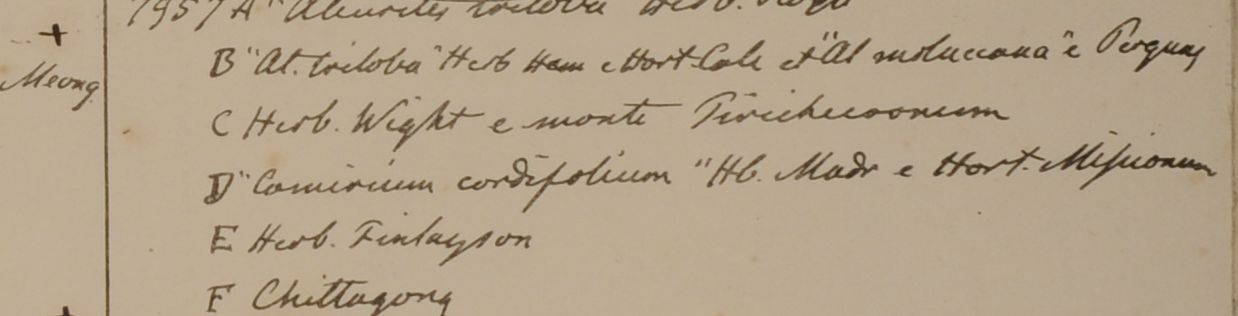 7957 A "Aleurites triloba Herb. Roxb
+
B "Al. triloba" Herb Ham e Hort Calc et "Al moluccana" e
Meong
C Herb. Wight e monte
D "Camirium cordifolium "Hb. Madr e Hort. Missionum
E Herb. Finlayson
F Chittagong